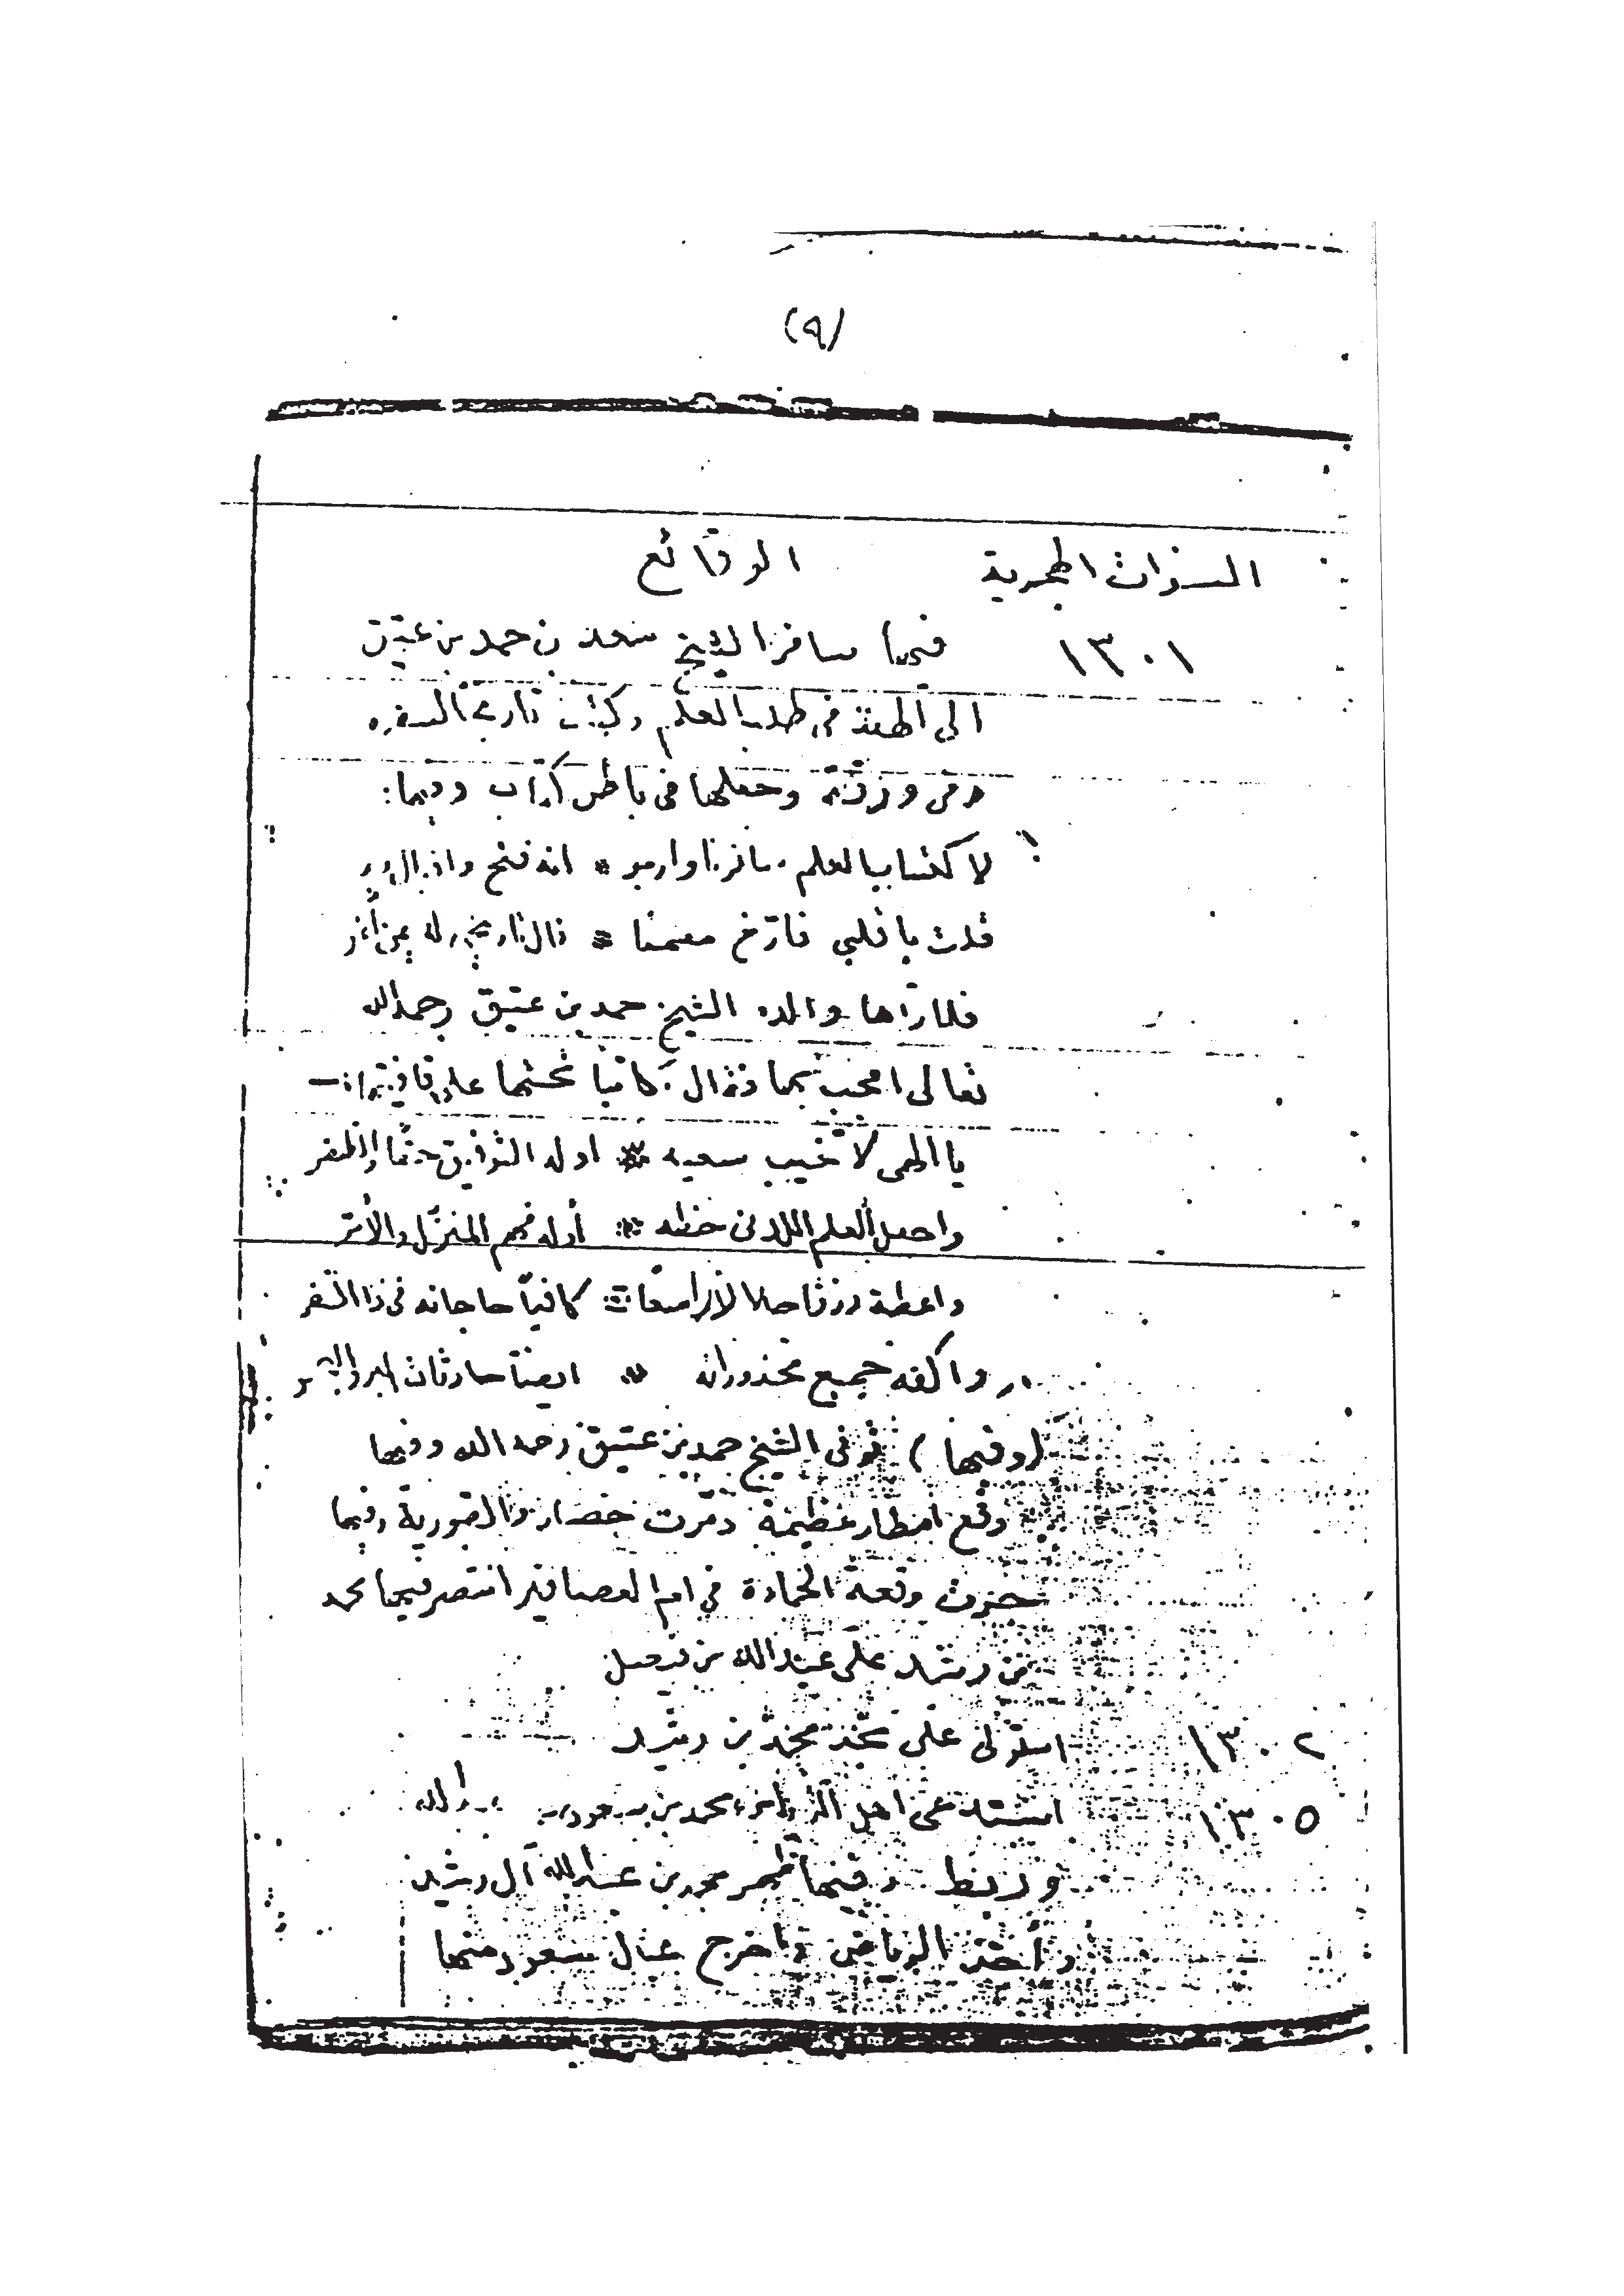 (٩)
السنوات الهجرية الوقائع
١٣٠١ فيها سافر الشيخ سعد بن حمد بن عتيق
الى الهند في طلب العلم وكتب تاريخ السفره
في ورقة وجعلها في باطن كتاب وفيها:
لاكتساب العلم سافرنا وارجو * انه فتح واقبال
قلت يا قلبي فأرخ معمنا * قال تاريخي له
فلما رآها والده الشيخ حمد بن عتيق رحمه الله
تعالى اعجب بها فقال كاتبا تحتها على قافيتها :-
يا الهي لا تخيب سعيه * اوله التوفيق حقا والظفر
واجعل العلم اللدني حظه * أوله فهم المنزل والأثر
واعطه رزقا حلالا واسعا * كافيا حاجاته في ذا السفر
واكفه جميع محذوراته * ايضا حادثات البر والبحر
(وفيها) توفي الشيخ حمد بن عتيق رحمه الله وفيها
وقع امطار عظيمة دمرت خضار والقورية وفيها
جرت وقعة الحمادة في ام العصافير انتصر فيها محمد
بن رشيد على عبدالله بن فيصل
١٣٠٢ استولى على نجد محمد بن رشيد
١٣٠٥ استد على اهل محمد بن سعود
وربط وفيها ظهر محمد بن عبدالله آل رشيد
وأخذ الرياض واخرج عيال سعود منها